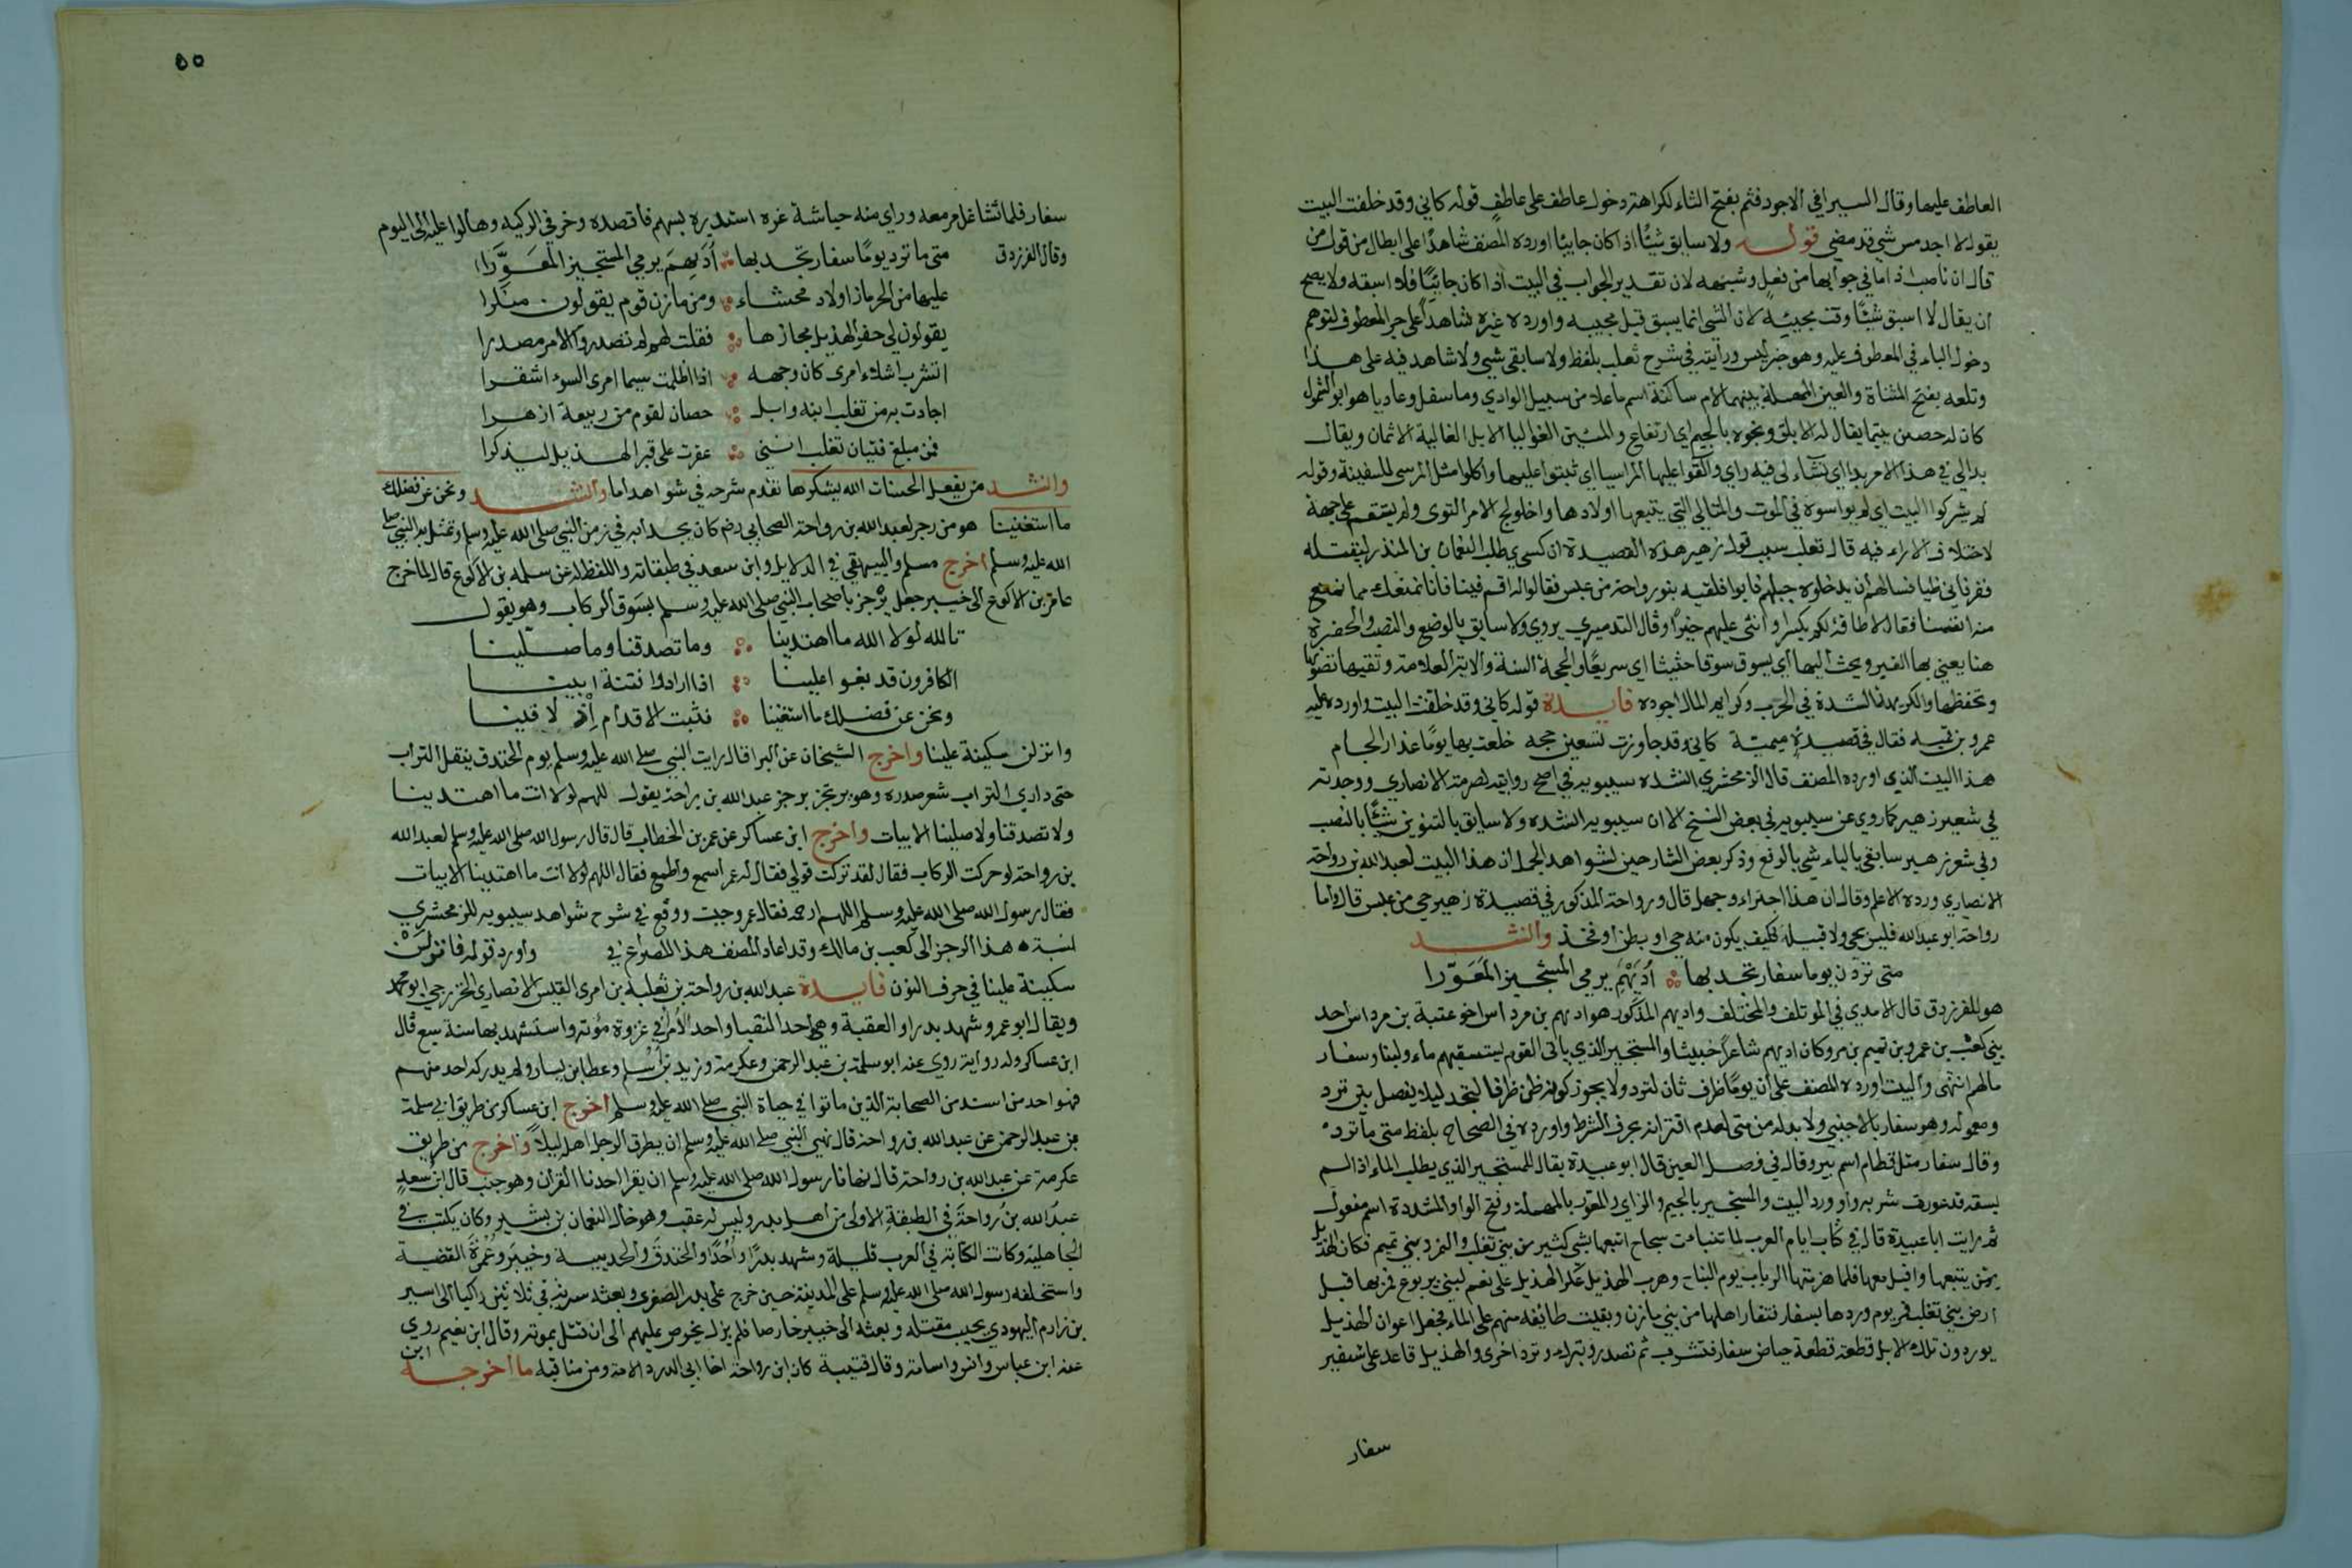 العاطف عليها وقال السيرافي الاجود فثم بفتح الثاء لكراهة دخول عاطف على عاطف قوله كاني وقد خلفت البيت
يقول لا اجد مس شي قد مضي قوله ولا سابق شيئا اذا كان جاييا اورده المصنف شاهدا على ابطال من قول من
قال ان ناصب اذا ما في جوابها من فعل وشبهه لان تقدير الجواب في البيت اذا كان جائيا فلا اسبقه ولا يصح
ان يقال لا اسبق شيئا وقت مجيئه لان الشي انما يسبق قبل مجيئه واورده غيره شاهدا على جر المعطوف لتوهم
دخول الباء في المعطوف عليه وهو خبر ليس ورايته في شرح ثعلب بلفظ ولا سابقي شيي ولا شاهد فيه على هذا
وتلعه بفتح المثناة والعين المهملة بينهما لام ساكنة اسم ما علا من سبيل الوادي وما سفل وعاديا هو ابو السمول
كان له حصن بتيما يقال له الابلق ونجوه بالجيم اي ارتفاع والمئين الغواليا الابل الغالية الاثمان ويقال
بدالي في هذا الامر بدا اي نشاء لي فيه راي والقوا عليها المراسيا اي ثبتوا عليها واكلوا مثل المرسى للسفينة وقوله
لم يشركوا البيت اي لم يواسوه في الموت والمتالي التي يتبعها اولادها واخلولج الامر التوى ولم يستقم على جهة
لاختلاف الاراء فيه قال ثعلب سبب قول زهير هذه القصيدة ان كسري طلب النعمان بن المنذر ليقتله
ففر فاتي طيا فسالهم ان يدخلوه جبلهم فابوا فلقيه بنو رواحة من عبس فقالوا له اقم فينا فانا نمنعك مما نمنع
منه انفسنا فقال لا طاقة لكم بكسرا واثنى عليهم خيرا وقال التدميري يروي ولا سابق بالوضع والنصب والحضرة
هنا يعني بها القبر ويحث اليها اي يسوق سوقا حثيثا اي سريعا والحجة السنة والاية العلامة وتقيها تصونها
وتحفظها والكريهة الشدة في الحرب وكرايم المال اجوده فايدة قوله كاني وقد خلفت البيت اورده عليه
عمرو بن قمية فقال في قصيدة ميمية كاني وقد جاوزت تسعين حجه خلعت بها يوما عذار لجام
هذا البيت الذي اورده المصنف قال الزمخشري انشده سيبويه في اصح روايته لصرمة الانصاري ووجدته
في شعر زهير كما روي عن سيبويه في بعض النسخ الا ان سيبويه انشده ولا سابق بالتنوين شيئا بالنصب
وفي شعر زهير سابقي بالياء شي بالرفع وذكر بعض الشارحين لشواهد الجمل ان هذا البيت لعبد الله بن رواحة
الانصاري ورده الاعلم وقال ان هذا اجتراء وجهل قال ورواحة المذكور في قصيدة زهير حي من عبس قال واما
رواحة ابو عبد الله فليس بحي ولا قبيلة فكيف يكون منه حي او بطن او فخذ وانشد
متى تردن يوما سفار تجد بها أديهم يرمي المستجيز المعورا
هو للفرزدق قال الامدي في الموتلف والمختلف واديهم المذكور هو اديهم بن مرداس اخو عتبة بن مرداس احد
بني كعب بن عمرو بن تميم بن مر وكان اديهم شاعرا خبيثا والمستجيز الذي ياتي القوم يستسقيهم ماء ولبنا وسفار
ما لهم انتهى والبيت اورده المصنف على ان يوما ظرف ثان لترد ولا يجوز كونه ظرفا لتجد ليلا يفصل بين ترد
ومعموله وهو سفار بالاجنبي ولا بدله من متى لعدم اقترانه بحرف الشرط واورده في الصحاح بلفظ متى ما ترد
وقال سفار مثل قطام اسم بير وقال في فصل العين قال ابو عبيدة يقال للمستجيز الذي يطلب الماء اذا لم
يسقه قد عورت شربه واورد البيت والمستجيز بالجيم والزاي والمعور بالمهملة وفتح الواو المشددة اسم مفعول
ثم رايت ابا عبيدة قال في كتاب ايام العرب لما تنبات سجاح اتبعها بشي كثير من بني تغلب والنمر وبني تميم فكان الهذيل
ممن يتبعها واقبل معها فلما هزمتها الرباب يوم النباح وهرب الهذيل على نعم لبني يربوع فمر بها قبل
ارض بني تغلب فمر يوم وردها بسفار نتفار اهلها من بني مازن وبقيت طائفة منهم على الماء فجعل اعوان الهذيل
يوردون تلك الابل قطعة قطعة حياض سفار فتشرب ثم تصدر وبتراء وترد اخرى والهذيل قاعد على شفير
سفار
٥٥
سفار فلما تشاغل من معه وراي منه حباشة غره استدبره بسهم فاقصده وخر في الركيه وهالوا عليه الى اليوم
وقال الفرزدق متى ما ترد يوما سفار تجد بها أديهم يرمي المستجيز المعورا
عليها من الحرماز اولاد محشاء ومن مازن قوم يقولون منكرا
يقولون لي حفر الهذيل مجازها فقلت لهم لم تصدروا الامر مصدرا
اتشرب اشلاء امرى كان وجهه اذا اظلمت سيما امرى السوء اشقرا
اجادت به من تغلب ابنه وابل حصان لقوم من ربيعة ازهرا
فمن مبلغ فتيان تغلب انني عقرت على قبر الهذيل ليذكرا
وانشد من يفعل الحسنات الله يشكرها تقدم شرحه في شواهد اما وانشد ونحن عن فضلك
ما استغنينا هو من رجز لعبد الله بن رواحة الصحابي رضه كان يحدا به في زمن النبي صلى الله عليه وسلم وتمثل به النبي صلى
الله عليه وسلم اخرج مسلم والبيهقي في الدلايل وابن سعد في طبقاته واللفظ له عن سلمه بن الاكوع قال لما خرج
عامر بن الاكوع الى خيبر جعل يرجز باصحاب النبي صلى الله عليه وسلم يسوق الركاب وهو يقول
تالله لولا الله ما اهتدينا وما تصدقنا وما صلينا
الكافرون قد بغوا علينا اذا ارادوا فتنة ابينا
ونحن عن فضلك ما استغنينا فثبت الاقدام إن لاقينا
وانزلن سكينة علينا واخرج الشيخان عن البرا قال رايت النبي صلى الله عليه وسلم يوم الخندق ينقل التراب
حتى وارى التراب شعر صدره وهو يرتجز برجز عبد الله بن رواحة يقول اللهم لولا انت ما اهتدينا
ولا تصدقنا ولا صلينا الابيات واخرج ابن عساكر عن عمر بن الخطاب قال قال رسول الله صلى الله عليه وسلم لعبد الله
بن رواحة لو حركت الركاب فقال لقد تركت قولي فقال له عمر اسمع واطع فقال اللهم لولا انت ما اهتدينا الابيات
فقال رسول الله صلى الله عليه وسلم اللهم ارحمه فقال عمر وجبت ووقع في شرح شواهد سيبويه للزمخشري
نسبة هذا الرجز الى كعب بن مالك وقد اعاد المصنف هذا المصراع في واورد قوله فانزلن
سكينة علينا في حرف النون فايدة عبد الله بن رواحة بن ثعلبة بن امرى القيس الانصاري الخزرجي ابو محمد
ويقال ابو عمرو شهد بدرا والعقبة وهو احد النقبا واحد الأمرا في غزوة مؤته واستشهد بها سنة سبع قال
ابن عساكر وله رواية روي عنه ابو سلمة بن عبد الرحمن وعكرمة وزيد بن أسلم وعطا بن يسار ولم يدركه احد منهم
فهو احد من اسند من الصحابة الذين ماتوا في حياة النبي صلى الله عليه وسلم اخرج ابن عساكر من طريق ابي سلمة
بن عبد الرحمن عن عبد الله بن رواحة قال نهى النبي صلى الله عليه وسلم ان يطرق الرجل اهله ليلا واخرج من طريق
عكرمة عن عبد الله بن رواحة قال نهانا رسول الله صلى الله عليه وسلم ان يقرا احدنا القرآن وهو جنب قال ابن سعد
عبد الله بن رواحة في الطبقة الاولى من اهل بدر وليس له عقب وهو خال النعمان بن بشير وكان يكتب في
الجاهلية وكانت الكتابة في العرب قليلة وشهد بدرا وأحدا والخندق والحديبية وخيبر وعمرة القضية
واستخلفه رسول الله صلى الله عليه وسلم على المدينة حين خرج على بدر الصغرى وبعثه سرية في ثلاثين راكبا الى اسير
بن زارم اليهودي بخيبر فقتله وبعثه الى خيبر خارصا فلم يزل يخرص عليهم الى ان قتل بموته وقال ابن نعيم روي
عنه ابن عباس وانس واسامة وقال قتيبة كان ابن رواحة اخا ابي الدرداء لامه ومن مناقبه ما اخرجه ابن